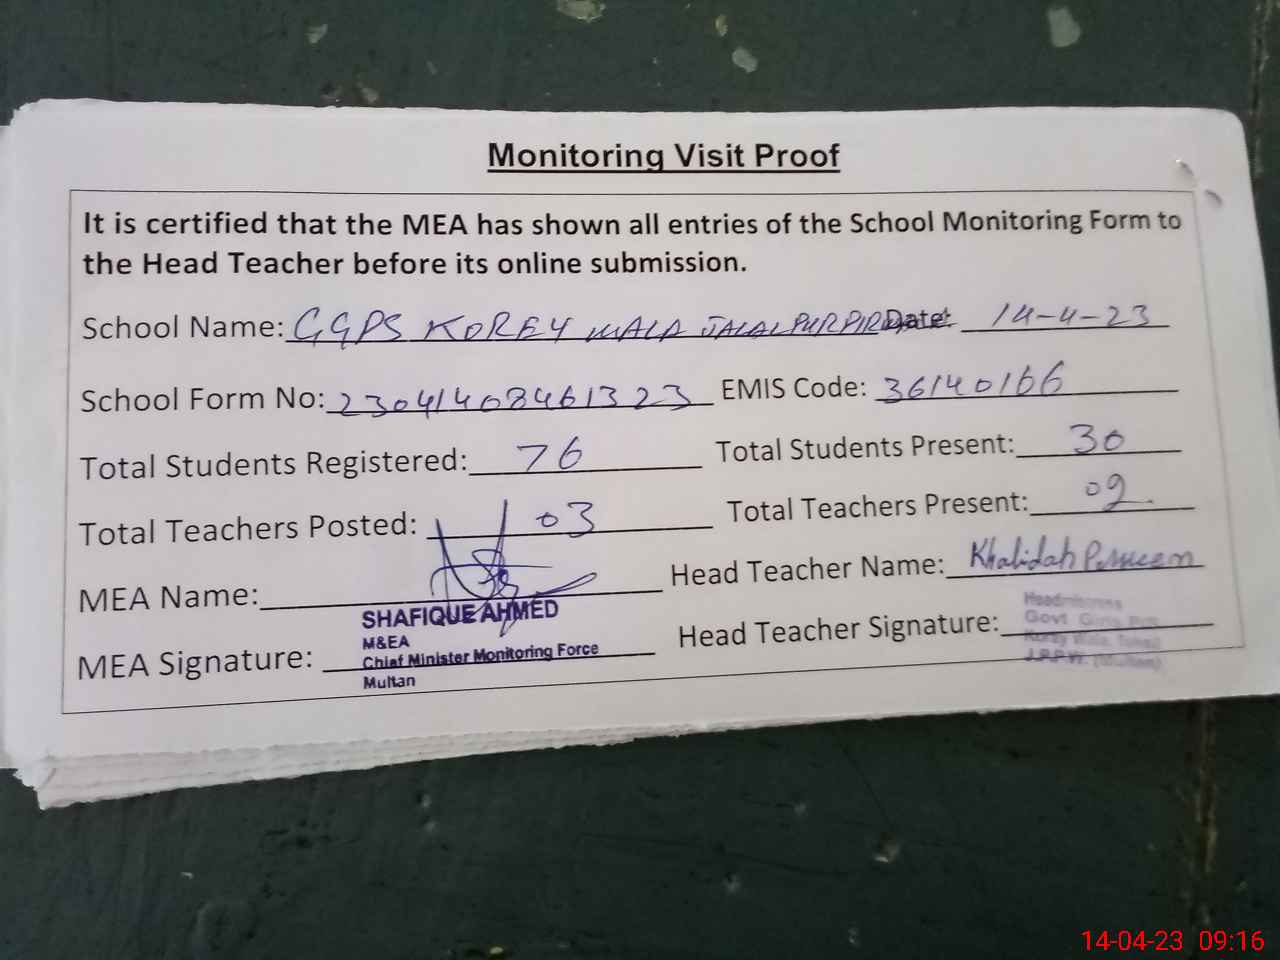 Monitoring Visit Proof
It is certified that the MEA has shown all entries of the School Monitoring Form to
the Head Teacher before its online submission.
School Name: GGPS KOREY WALA JALALPUR PIR Date: 14-4-23
School Form No: 23041408461323 EMIS Code: 36140166
Total Students Registered: 76 Total Students Present: 30
Total Teachers Posted: 03 Total Teachers Present: 02
MEA Name: Head Teacher Name: Khalidah Perveen
SHAFIQUE AHMED
M&EA
Chief Minister Monitoring Force
Multan
MEA Signature: Head Teacher Signature:
Headmistress
Govt Girls
14-04-23 09:16